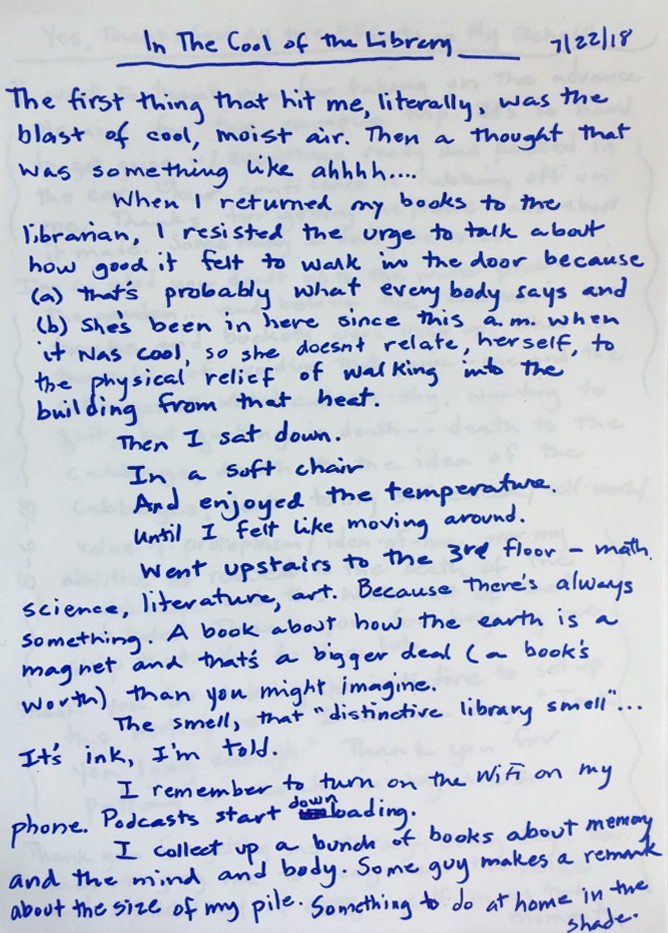 In The Cool of the Library 7/22/18
The first thing that hit me, literally, was the
blast of cool, moist air. Then a thought that
was something like ahhhh...
When I returned my books to the
librarian, I resisted the urge to talk about
how good it felt to walk in the door because
(a) that's probably what everybody says and
(b) she's been in here since this a.m. when
it was cool, so she doesn't relate, herself, to
the physical relief of walking into the
building from that heat.
Then I sat down.
In a soft chair
And enjoyed the temperature.
Until I felt like moving around.
Went upstairs to the 3rd floor - math.
science, literature, art. Because there's always
something. A book about how the earth is a
magnet and that's a bigger deal (a book's
worth) than you might imagine.
The smell, that "distinctive library smell"...
It's ink, I'm told.
I remember to turn on the WiFi on my
phone. Podcasts start downloading.
I collect up a bunch of books about memory
and the mind and body. Some guy makes a remark
about the size of my pile. Something to do at home in the
shade.